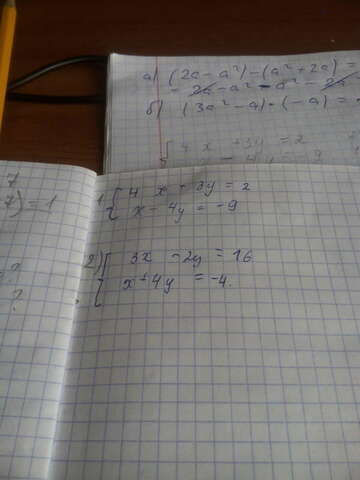 а) (2a-a²)-(a²+2a)=
= 2a-a²-a²-2a
б) (3a²-a)·(-a)=
4x+3y=2
x-4y=-9
7
7)=1
1) 4x-3y=2
x-4y=-9
2) 3x-2y=16
x+4y=-4.
?
?